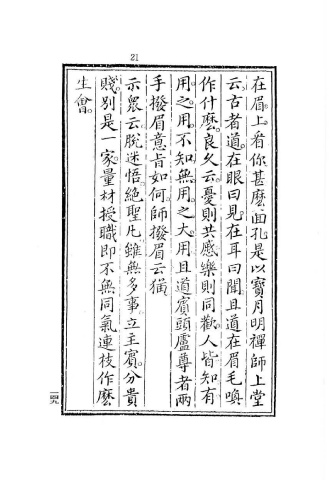 21
在眉上看你甚麽面孔是以寶月明禪師上堂
云古者道在眼曰見在耳曰聞且道在眉毛喚
作什麽良久云憂則共慼樂則同歡人皆知有
用之用不知無用之大用且道賓頭盧尊者兩
手撥眉意旨如何師撥眉云猫
示衆云脫迷悟絕聖凡雖無多事立主賓分貴
賤別是一家量材授職即不無同氣連枝作麽
生會
一四九